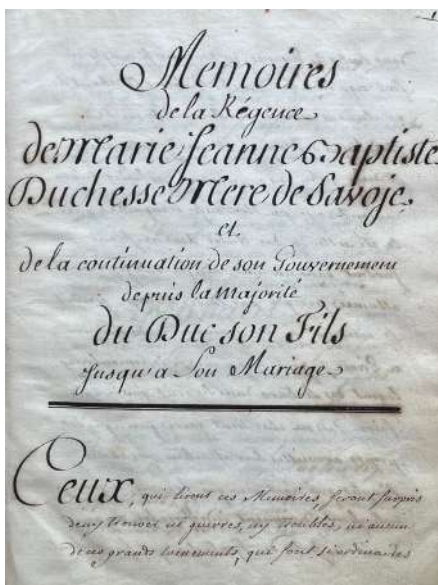 Memoires
de la Régence
de Marie Jeanne Baptiste
Duchesse Mere de Savoje
et
de la continuation de son Gouvernement
depuis la Majorité
du Duc son Fils
jusqu'a Son Mariage
Ceux, qui liront ces Memoires, seront surpris
de n'y trouver ni guerres, ny troubles, ni aucun
de ces grands evenements, qui sont si ordinaires